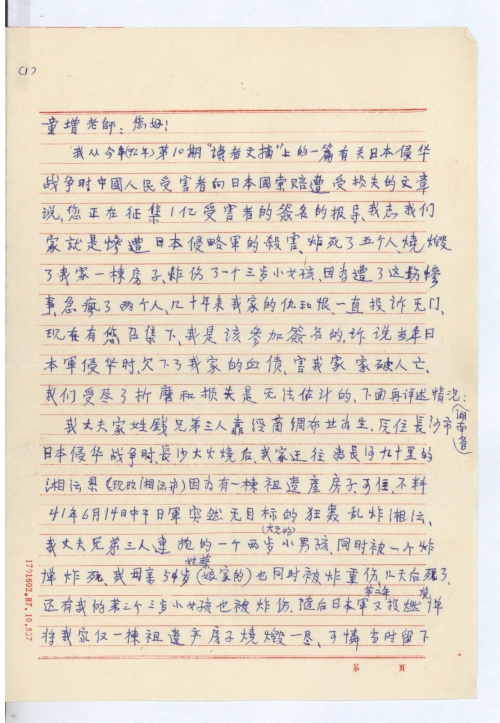 (1)
童增老师：您好！
我从今年(92年)第10期"读者文摘"上的一篇有关日本侵华
战争时中國人民受害者向日本國索赔遭受损失的文章
说，您正在征集1亿受害者的签名的报导，我我们
家就是惨遭日本侵略軍的殺害，炸死了五个人，燒燬
了我家一棟房子，炸伤了一个三岁小女孩，因为遭了这場惨
事，急瘋了两个人，几十年来我家的仇和恨，一直投诉无门，
现在有您召集下，我是该參加簽名的，訴说当年日
本軍侵华时，欠下了我家的血债，害我家家破人亡，
我们受尽了折磨和损失是无法估计的，下面再详述情况：
我丈夫家姓錢兄弟三人靠经商绸布廿为生，原住長沙市
湖南省
日本侵华战争时，長沙大火燒后，我家迁往离長沙九十里的
湘潭县(现改湘潭市)因为有一棟祖遗產房子可住，不料
41年6月14日中午日軍突然无目标的狂轰乱炸湘潭，
(大哥的)
我丈夫兄弟三人連抱的一个两岁小男孩，同时被一个炸
弹炸死，我母亲54岁(娘家的)也同时被炸重伤，几天后死了，
还有我的第二个三岁小女孩也被炸伤，随后日本軍又投燃燒弹
第二年
将我家仅一棟祖遗产房子燒燬一息，可憐当时留下
1701602.87.10.857
第 頁